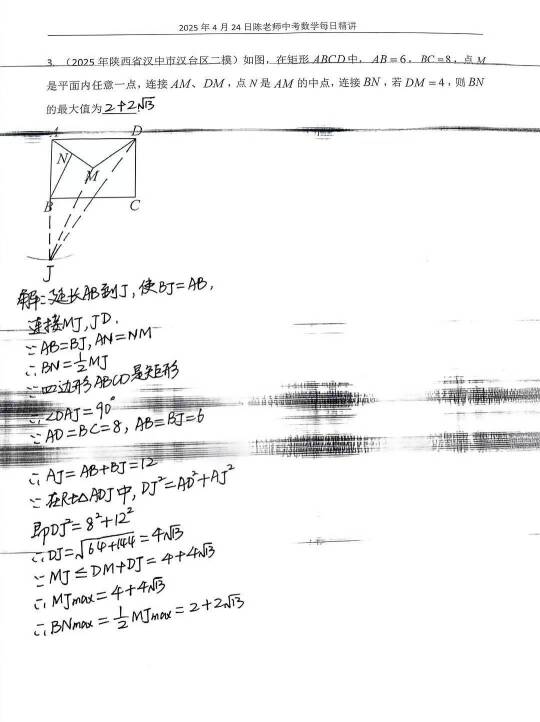 2025 年 4 月 24 日陈老师中考数学每日精讲
3. （2025 年陕西省汉中市汉台区二模）如图，在矩形 ABCD 中， AB = 6， BC = 8，点 M
是平面内任意一点，连接 AM、DM，点 N 是 AM 的中点，连接 BN，若 DM = 4，则 BN
的最大值为 2+2√13
A D
N
M
B C
J
解：延长AB到J，使BJ=AB，
连接MJ，JD.
∵AB=BJ，AN=NM
∴BN=½MJ
∵四边形ABCD是矩形
∴∠DAJ=90°
∵AD=BC=8，AB=BJ=6
∴AJ=AB+BJ=12
∵在Rt△ADJ中，DJ²=AD²+AJ²
即DJ²=8²+12²
∴DJ=√64+144=4√13
∵MJ≤DM+DJ=4+4√13
∴MJmax=4+4√13
∴BNmax=½MJmax=2+2√13